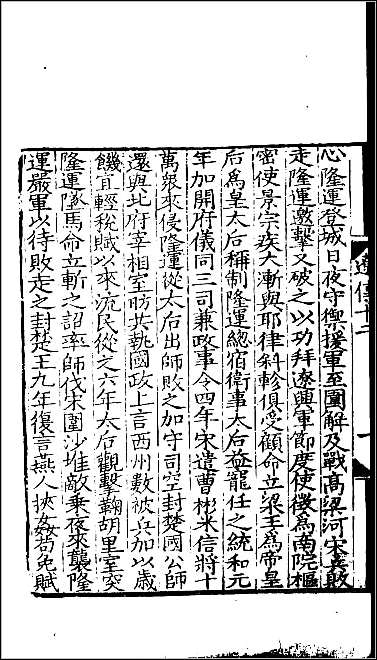 心隆運登城日夜守禦援軍至圍解及戰高梁河宋兵敗
走隆運邀擊又破之以功拜遼興軍節度使徵為南院樞
密使景宗疾大漸與耶律斜軫俱受顧命立梁王為帝皇
后為皇太后稱制隆運總宿衛事太后益寵任之統和元
年加開府儀同三司兼政事令四年宋遣曹彬米信將十
萬衆來侵隆運從太后出師敗之加守司空封楚國公師
還與北府宰相室昉共執國政上言西州數被兵加以歲
饑宜輕稅賦以來流民從之六年太后觀擊鞠胡里室突
隆運墜馬命立斬之詔率師伐宋圍沙堆敵乘夜來襲隆
運嚴軍以待敗走之封楚王九年復言燕人挾姦苟免賦